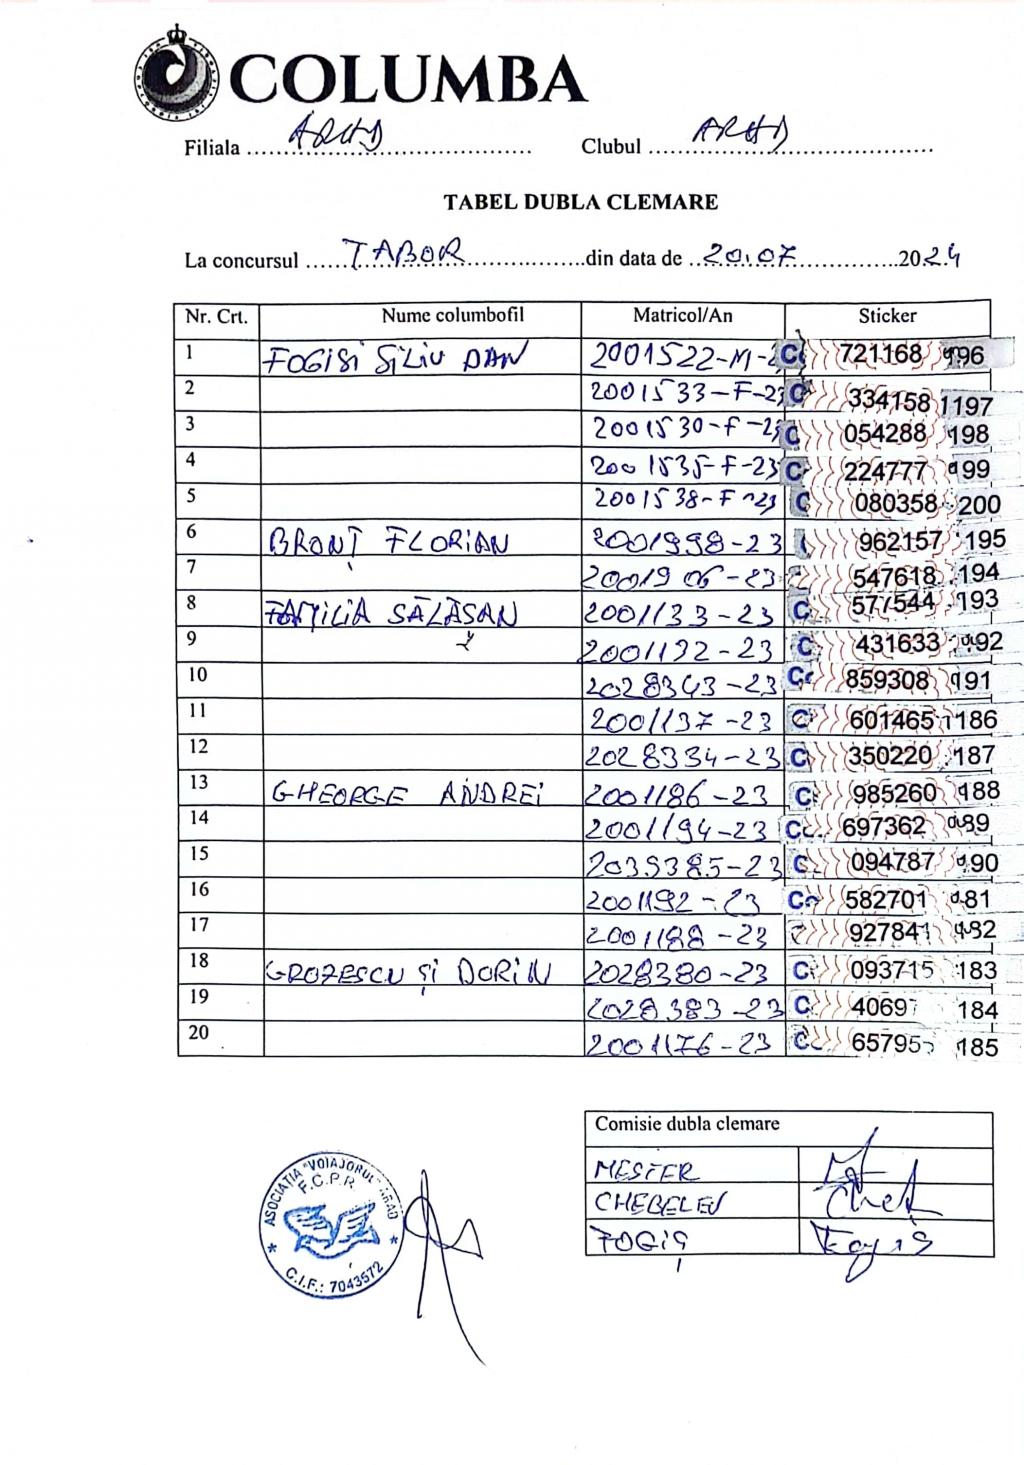 COLUMBA
Filiala ARAD Clubul ARAD
TABEL DUBLA CLEMARE
La concursul TABOR din data de 20.07 2024
Nr. Crt. Nume columbofil Matricol/An Sticker
1 FOGISI SILIU DAN 2001522-M-2 721168 996
2 2001533-F-23 334158 1197
3 2001530-F-23 054288 198
4 2001535-F-23 224777 99
5 2001538-F-23 080358 200
6 BRONȚ FLORIAN 2001998-23 962157 195
7 2001906-23 547618 194
8 FAMILIA SĂLĂȘAN 2001133-23 577544 193
9 2001132-23 431633 92
10 2028343-23 859308 191
11 2001137-23 601465 186
12 2028334-23 350220 187
13 GHEORGE ANDREI 2001186-23 985260 188
14 2001194-23 697362 89
15 2039385-23 094787 90
16 2001192-23 582701 81
17 2001188-23 927841 82
18 GROZESCU ȘI DORIN 2028380-23 093715 183
19 2028383-23 40697 184
20 2001176-23 65795 185
Comisie dubla clemare
MESTER
CHEBELEU
FOGIȘ Fogiș
ASOCIATIA "VOIAJORUL" ARAD
F.C.P.R.
C.I.F.: 7043572